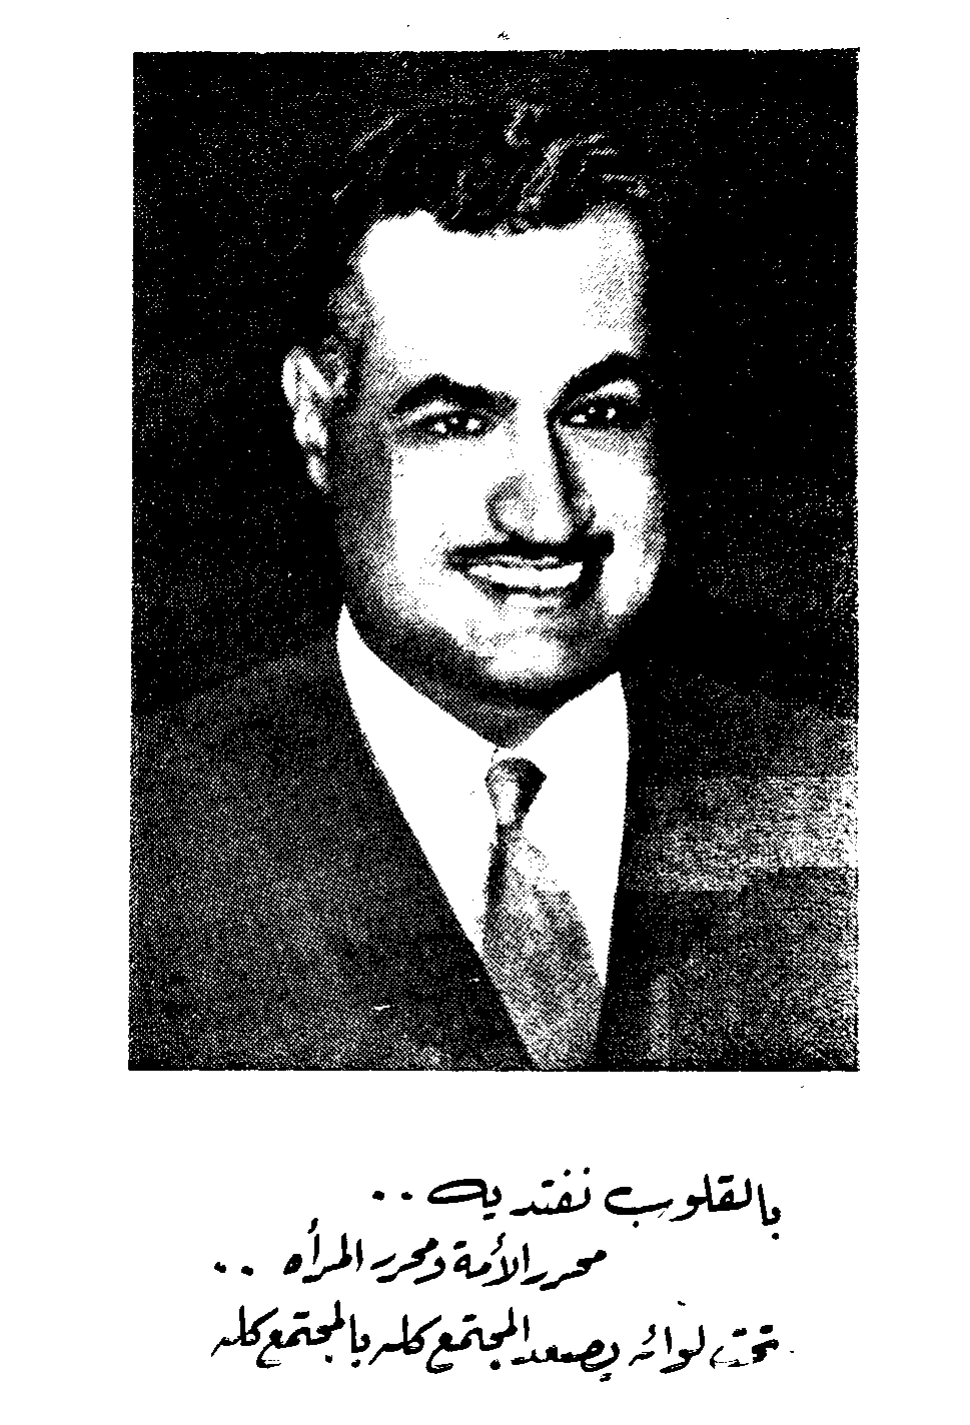 بالقلوب نفتديه ..
محرر الأمة ومحرر المرأه ..
تحت لوائه يصعد المجتمع كله بالمجتمع كله